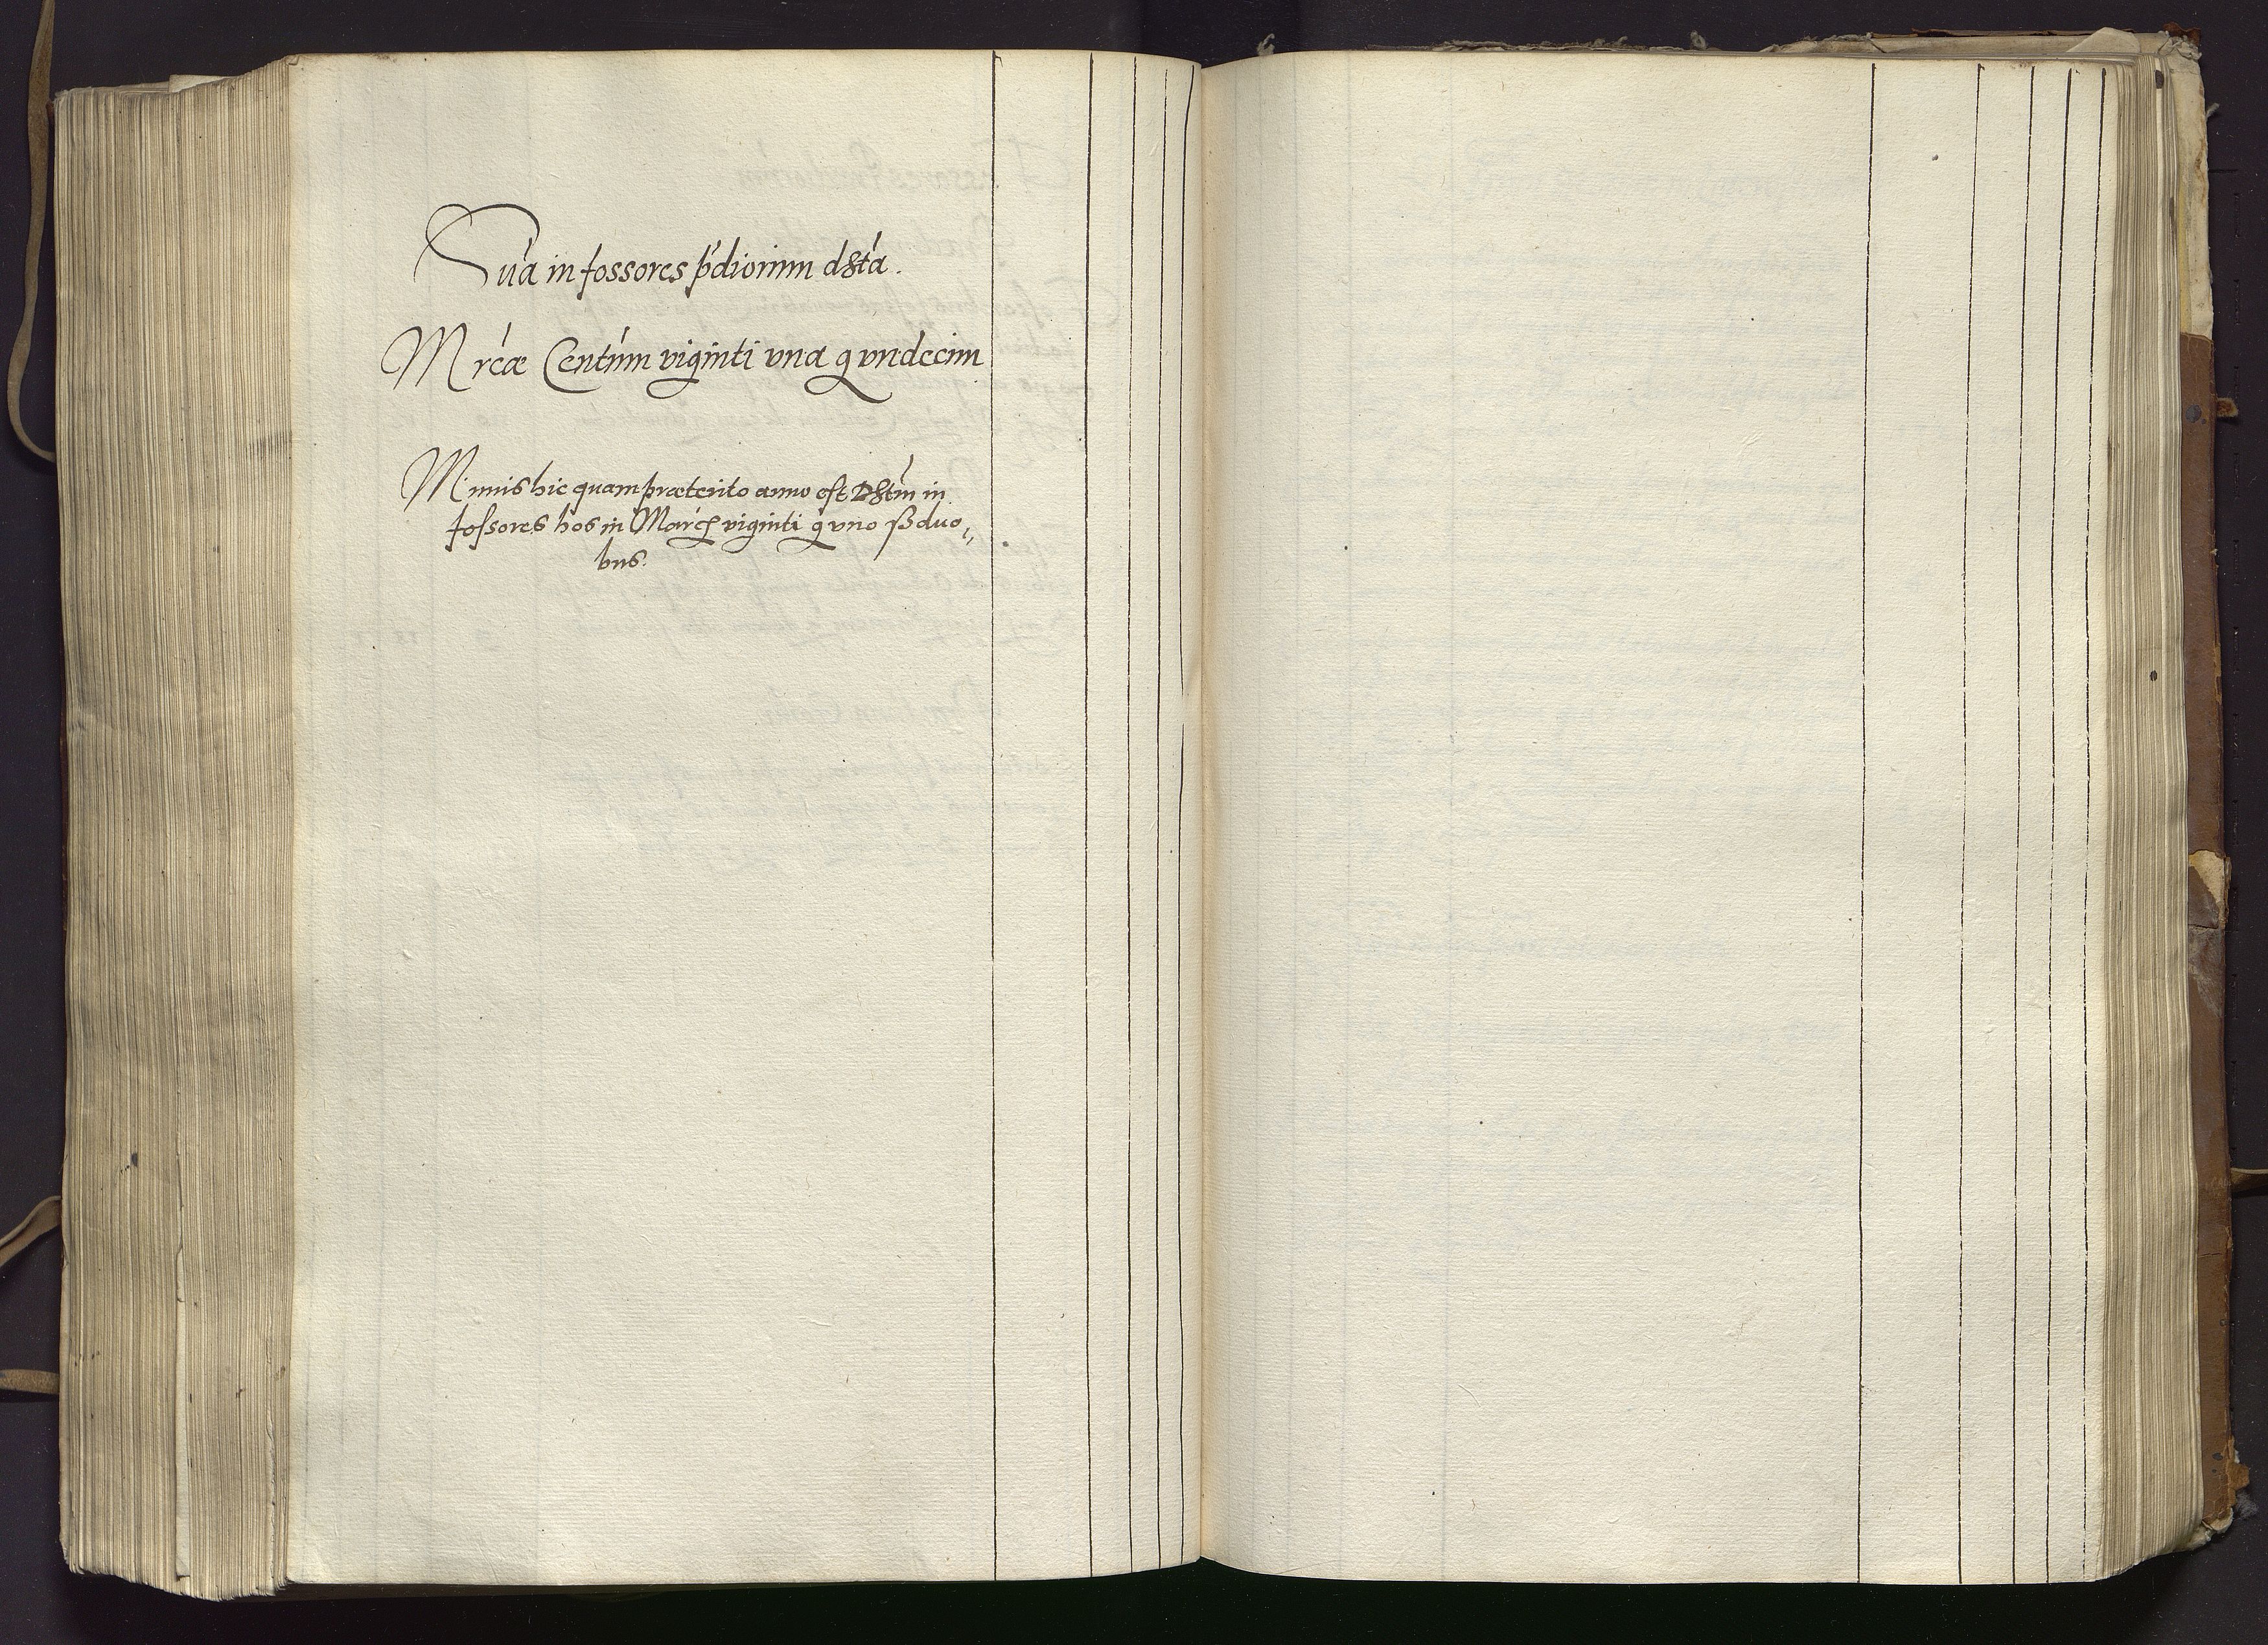 Sũa in fossores p̃diorum dsta.
Mrcæ Centum viginti vna g vndecim
Minus hic quam præterito anno est Dstm in
fossores hos in March viginti g vno ß duo„
bus.